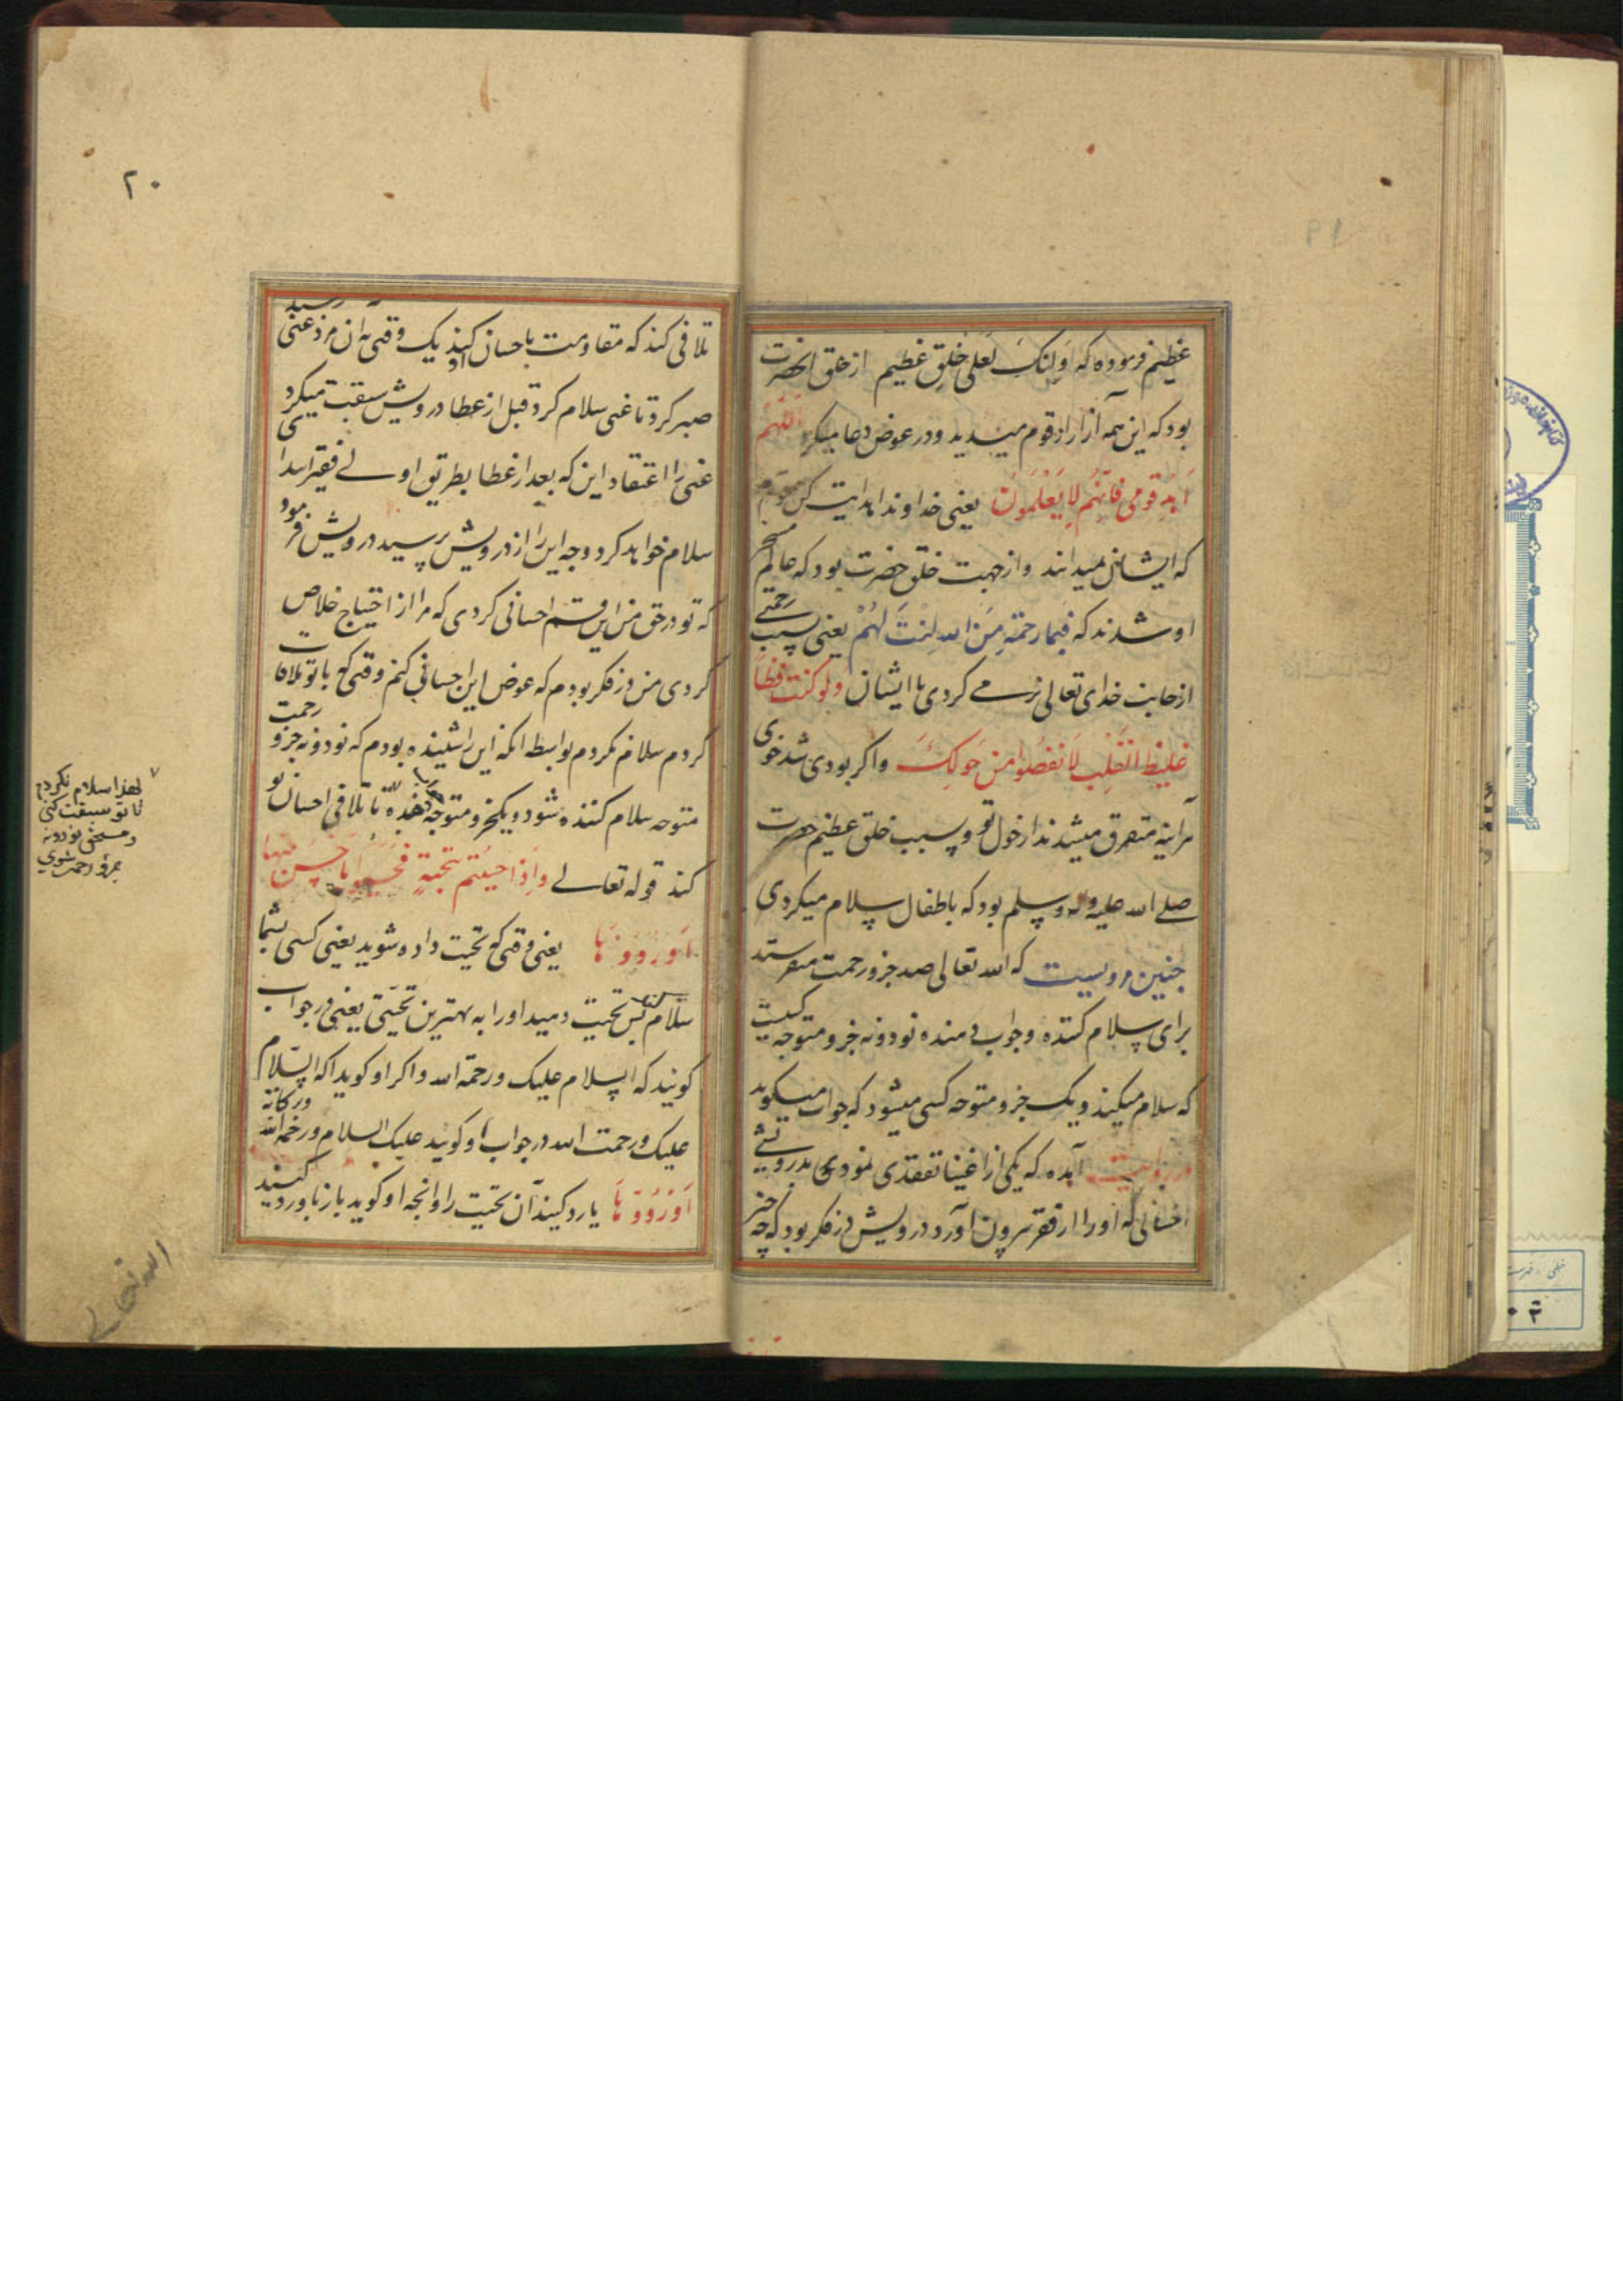 عظیم فرموده که اوانک لعلی خلق عظیم از خلق انحضرت
بود که این همه آزار از قوم میدید و در عوض دعا میکرد اللهم
اهد قومی فانهم لا یعلمون یعنی خداوندا هدایت کن قوم
که ایشان نمیدانند و از جهت خلق حضرت بود که عالم مسخر
او شدند که فبما رحمة من الله لنت لهم یعنی بسبب رحمتے
از جانب خدای تعالی نرمے کردی با ایشان ولو کنت فظا
غلیظ القلب لانفضوا من حولک و اکر بودی تند خوی
هراینه متفرق میشدند از حول تو و بسبب خلق عظیم حضرت
صلے الله علیه واله وسلم بود که باطفال سلام میکردی
جنین مرویست که الله تعالی صد جزو رحمت میفرستد
برای سلام کننده و جواب دهنده نود و نه جزو متوجه کسیت
که سلام میکند و یک جزو متوجه کسی میشود که جواب میکوید
در روایت آمده که یکی از اغنیا تفقدی نمودی بدرویشے
احسانی که او را از فقر بیرون آورد درویش در فکر بود که چه خبر
۲۰
تلافی کند که مقاومت باحسان او کند یک وقتی به آن مرد غنی رسید
صبر کرد تا غنی سلام کرد قبل از عطا درویش سبقت میکرد
غنی را اعتقاد این که بعد از عطا بطریق اولے فقیر ابتدا
سلام خواهد کرد وجه این را از درویش پرسید درویش فرمود
که تو در حق من این قسم احسانی کردی که مرا از احتیاج خلاص
کردی من در فکر بودم که عوض این احسانی کنم وقتی که با تو ملاقات
کردم سلام نکردم بواسطه انکه این را شنیده بودم که نود و نه جزو رحمت
متوجه سلام کننده شود و یکجزو متوجه جواب دهنده تا تلافی احسان تو
کند قوله تعالے واذا حییتم بتحیة فحیوا باحسن منها
او ردوها یعنی وقتی که تحیت داده شوید یعنی کسی بشما
سلام کند پس تحیت دهید او را به بهترین تحیتی یعنی در جواب
کویند که السلام علیک ورحمة الله و اکر او کوید که السلام
علیک ورحمت الله در جواب او کویند علیک السلام ورحمة الله وبرکاته
او ردوها یا رد کنید آن تحیت را وانچه او کوید باز باو رد کنید
لهذا سلام نکردم
تا تو سبقت کنی
و مستحق نود و نه
جزو رحمت شوی
الله تعالے